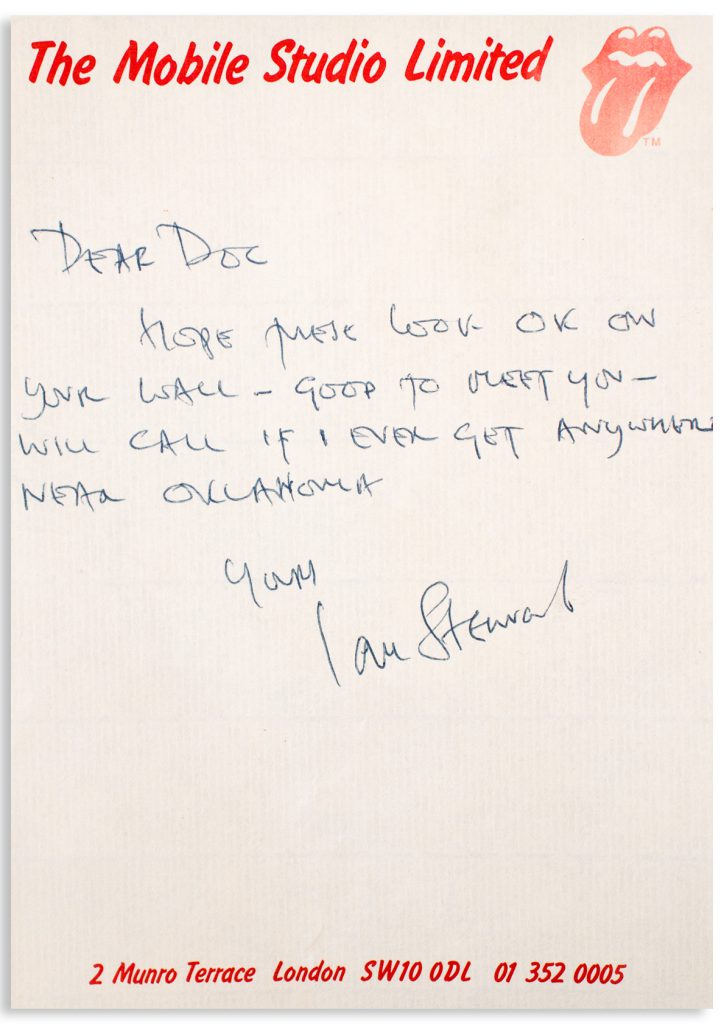 The Mobile Studio Limited
TM
DEAR DOC
HOPE THESE LOOK OK ON
YOUR WALL – GOOD TO MEET YOU –
WILL CALL IF I EVER GET ANYWHERE
NEAR OKLAHOMA
YOURS
Ian Stewart
2 Munro Terrace London SW10 0DL 01 352 0005